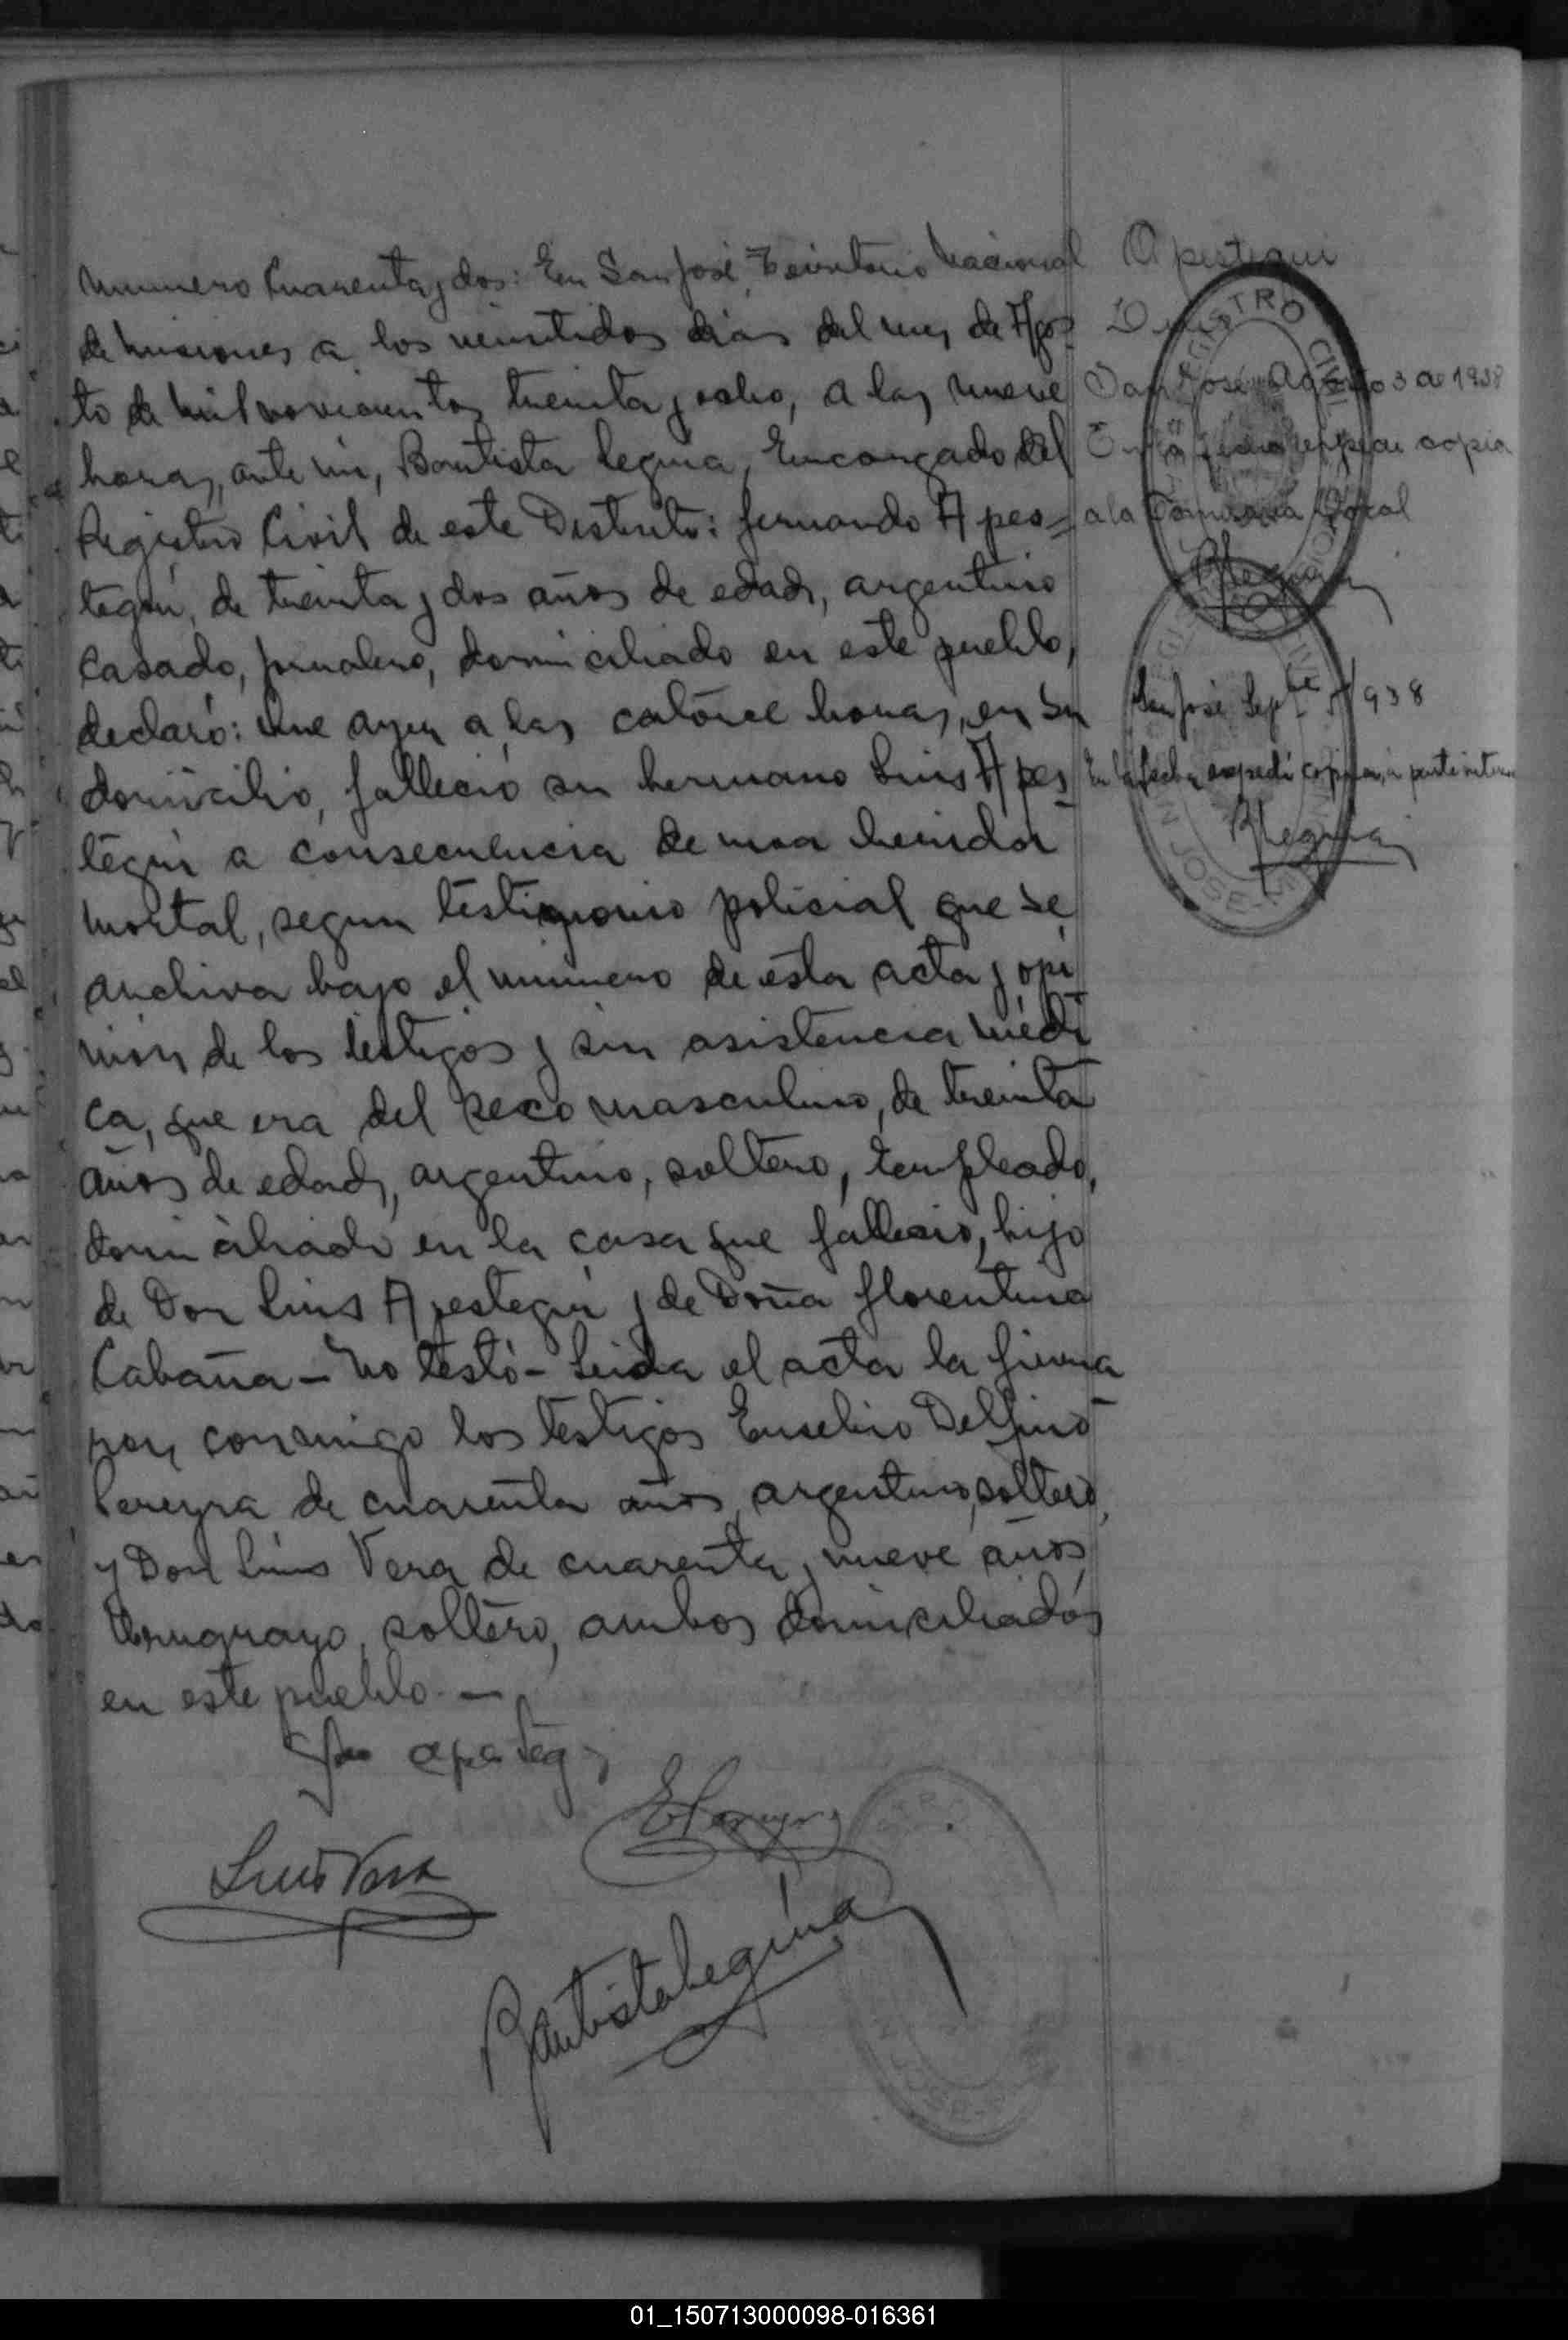 Numero Cuarenta y dos: En San José, Territorio Nacional
de Misiones a los veintidos dias del mes de Agos-
to de mil novecientos treinta y ocho, a las nueve
horas, ante mi, Bautista Leguia, Encargado del
Registro Civil de este Distrito: Fernando Apes=
tegui, de treinta y dos años de edad, argentino
casado, jornalero, domiciliado en este pueblo,
declaró: Que ayer a las catorce horas, en su
domicilio, falleció su hermano Luis Apes-
tegui a consecuencia de una herida
mortal, segun testimonio policial que se
archiva bajo el numero de esta acta y opi
nión de los testigos y sin asistencia médi
ca, que era del sexo masculino, de treinta
años de edad, argentino, soltero, empleado,
domiciliado en la casa que falleció, hijo
de Don Luis Apestegui y de Doña Florentina
Cabaña - No testó - Leida el acta la firma
ron conmigo los testigos Eusebio Delfino
Pereyra de cuarenta años, argentino, soltero,
y Don Luis Vera de cuarenta y nueve años
Uruguayo, soltero, ambos domiciliados
en este pueblo. -
Luis Vera
EPereyra
Bautista Leguia
Apestegui
Luis
San José, Agosto 3 de 1938
En la fecha expedi copia
a la Comisaria Local
BLeguia
San José Septe 5/938
En la fecha expedi copia a parte
BLeguia
REGISTRO CIVIL
SAN JOSE-MISIONES
01_150713000098-016361